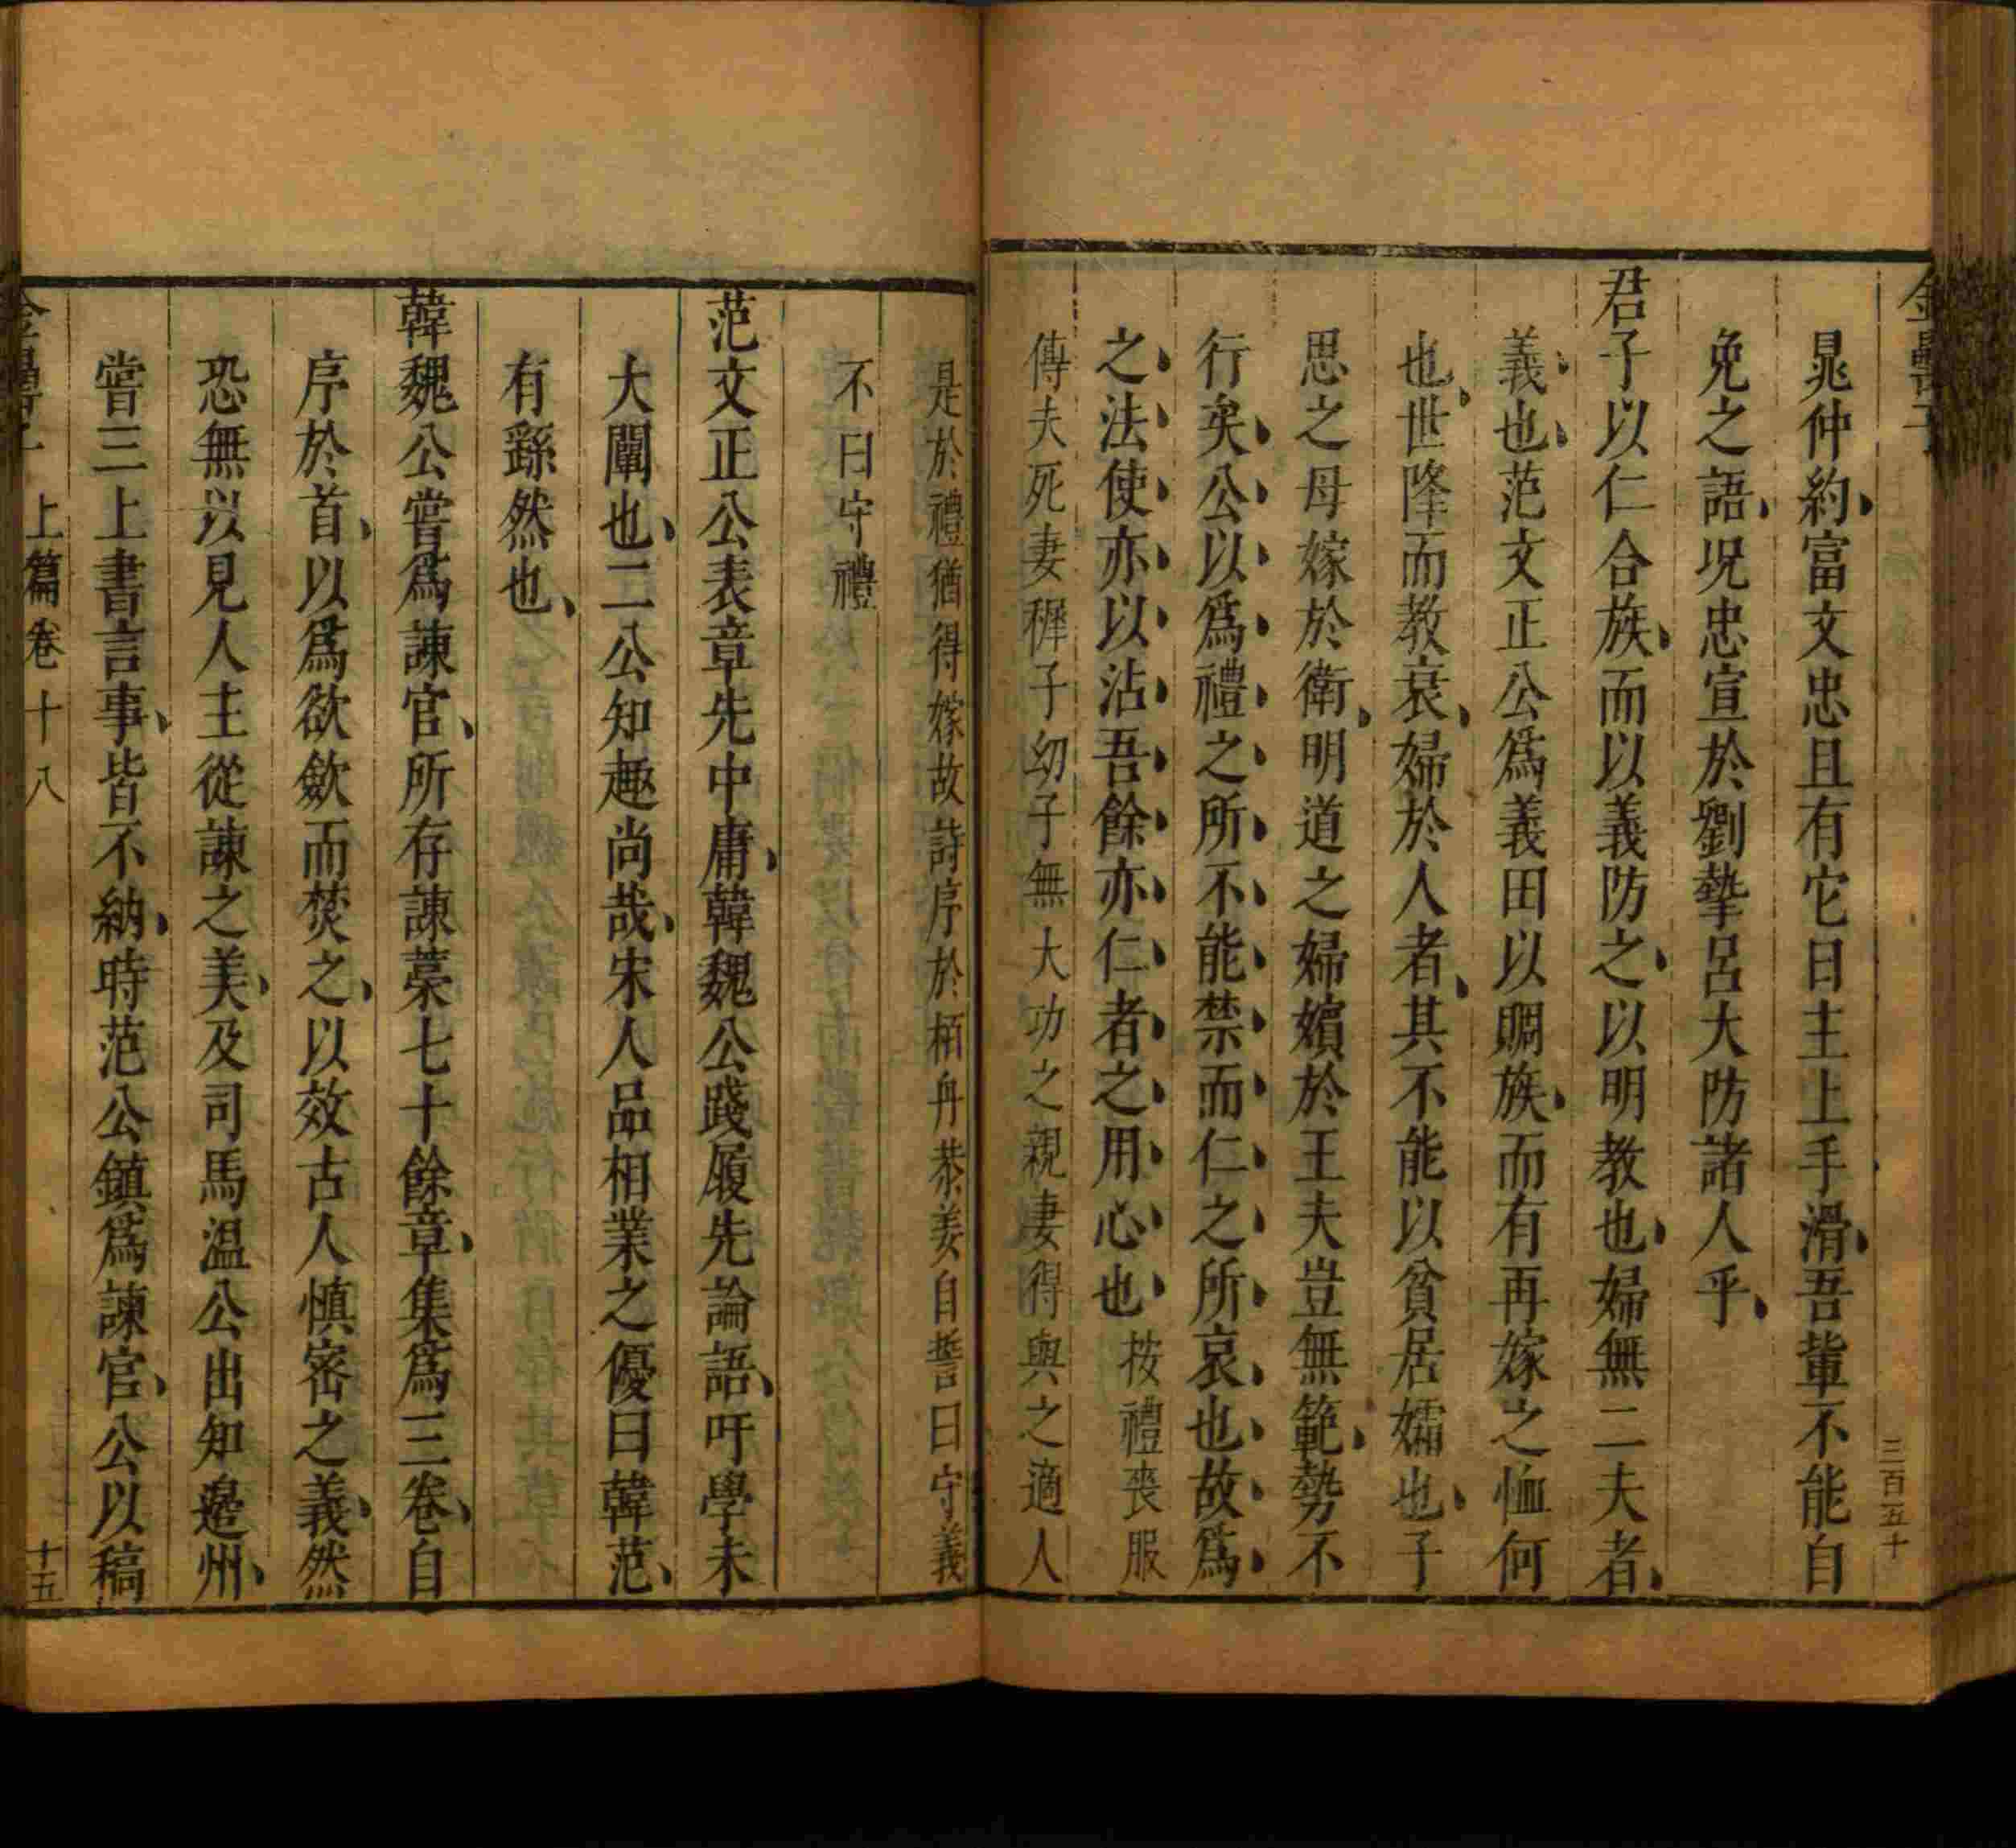 三百五十
晁仲約富文忠且有它日主上手滑吾輩不能自
免之語况忠宣於劉摯呂大防諸人乎
君子以仁合族而以義防之以明教也婦無二夫者
義也范文正公爲義田以賙族而有再嫁之恤何
也世降而教衰婦於人者其不能以貧居孀也子
思之母嫁於衛明道之婦嬪於王夫豈無範勢不
行矣公以爲禮之所不能禁而仁之所哀也故爲
之法使亦以沾吾餘亦仁者之用心也按禮喪服
傳夫死妻穉子幼子無大功之親妻得與之適人
是於禮猶得嫁故詩序於栢舟恭姜自誓曰守義
不曰守禮
范文正公表章先中庸韓魏公踐履先論語吁學未
大闡也二公知趣尚哉宋人品相業之優曰韓范
有繇然也
韓魏公嘗爲諫官所存諫藁七十餘章集爲三卷自
序於首以爲欲歛而焚之以效古人慎密之義然
恐無以見人主從諫之美及司馬温公出知邊州
嘗三上書言事皆不納時范公鎮爲諫官公以稿
上篇卷十八
十五